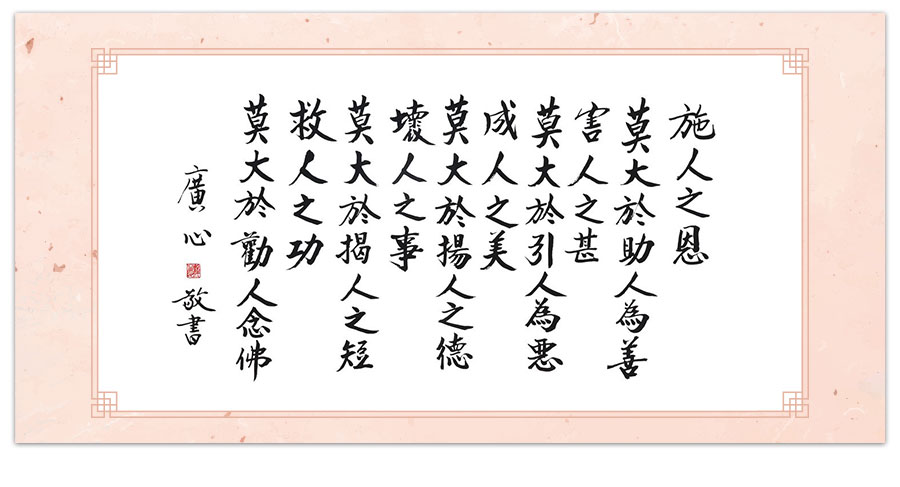 施人之恩
莫大於助人為善
害人之甚
莫大於引人為惡
成人之美
莫大於揚人之德
壞人之事
莫大於揭人之短
救人之功
莫大於勸人念佛
廣心 敬書